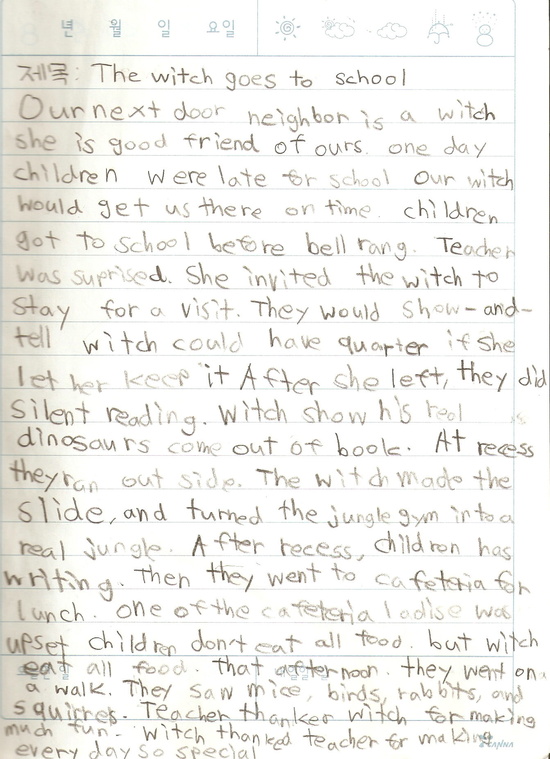 년 월 일 요일
제목: The witch goes to school
Our next door neighbor is a witch
she is good friend of ours. one day
children were late for school Our witch
would get us there on time. children
got to school before bell rang. Teacher
was suprised. She invited the witch to
stay for a visit. They would show-and-
tell witch could have quarter if she
let her keep it After she left, they did
silent reading. Witch show his real
dinosaurs come out of book. At recess
they ran out side. The witch made the
slide, and turned the jungle gym into a
real jungle. After recess, children has
writing. Then they went to cafeteria for
lunch. one of the cafeteria ladise was
upset children don't eat all food. but witch
eat all food. that afternoon. they went on
a walk. They saw mice, birds, rabbits, and
squirres. Teacher thanker witch for making
much fun. witch thanked teacher for making
every day so special